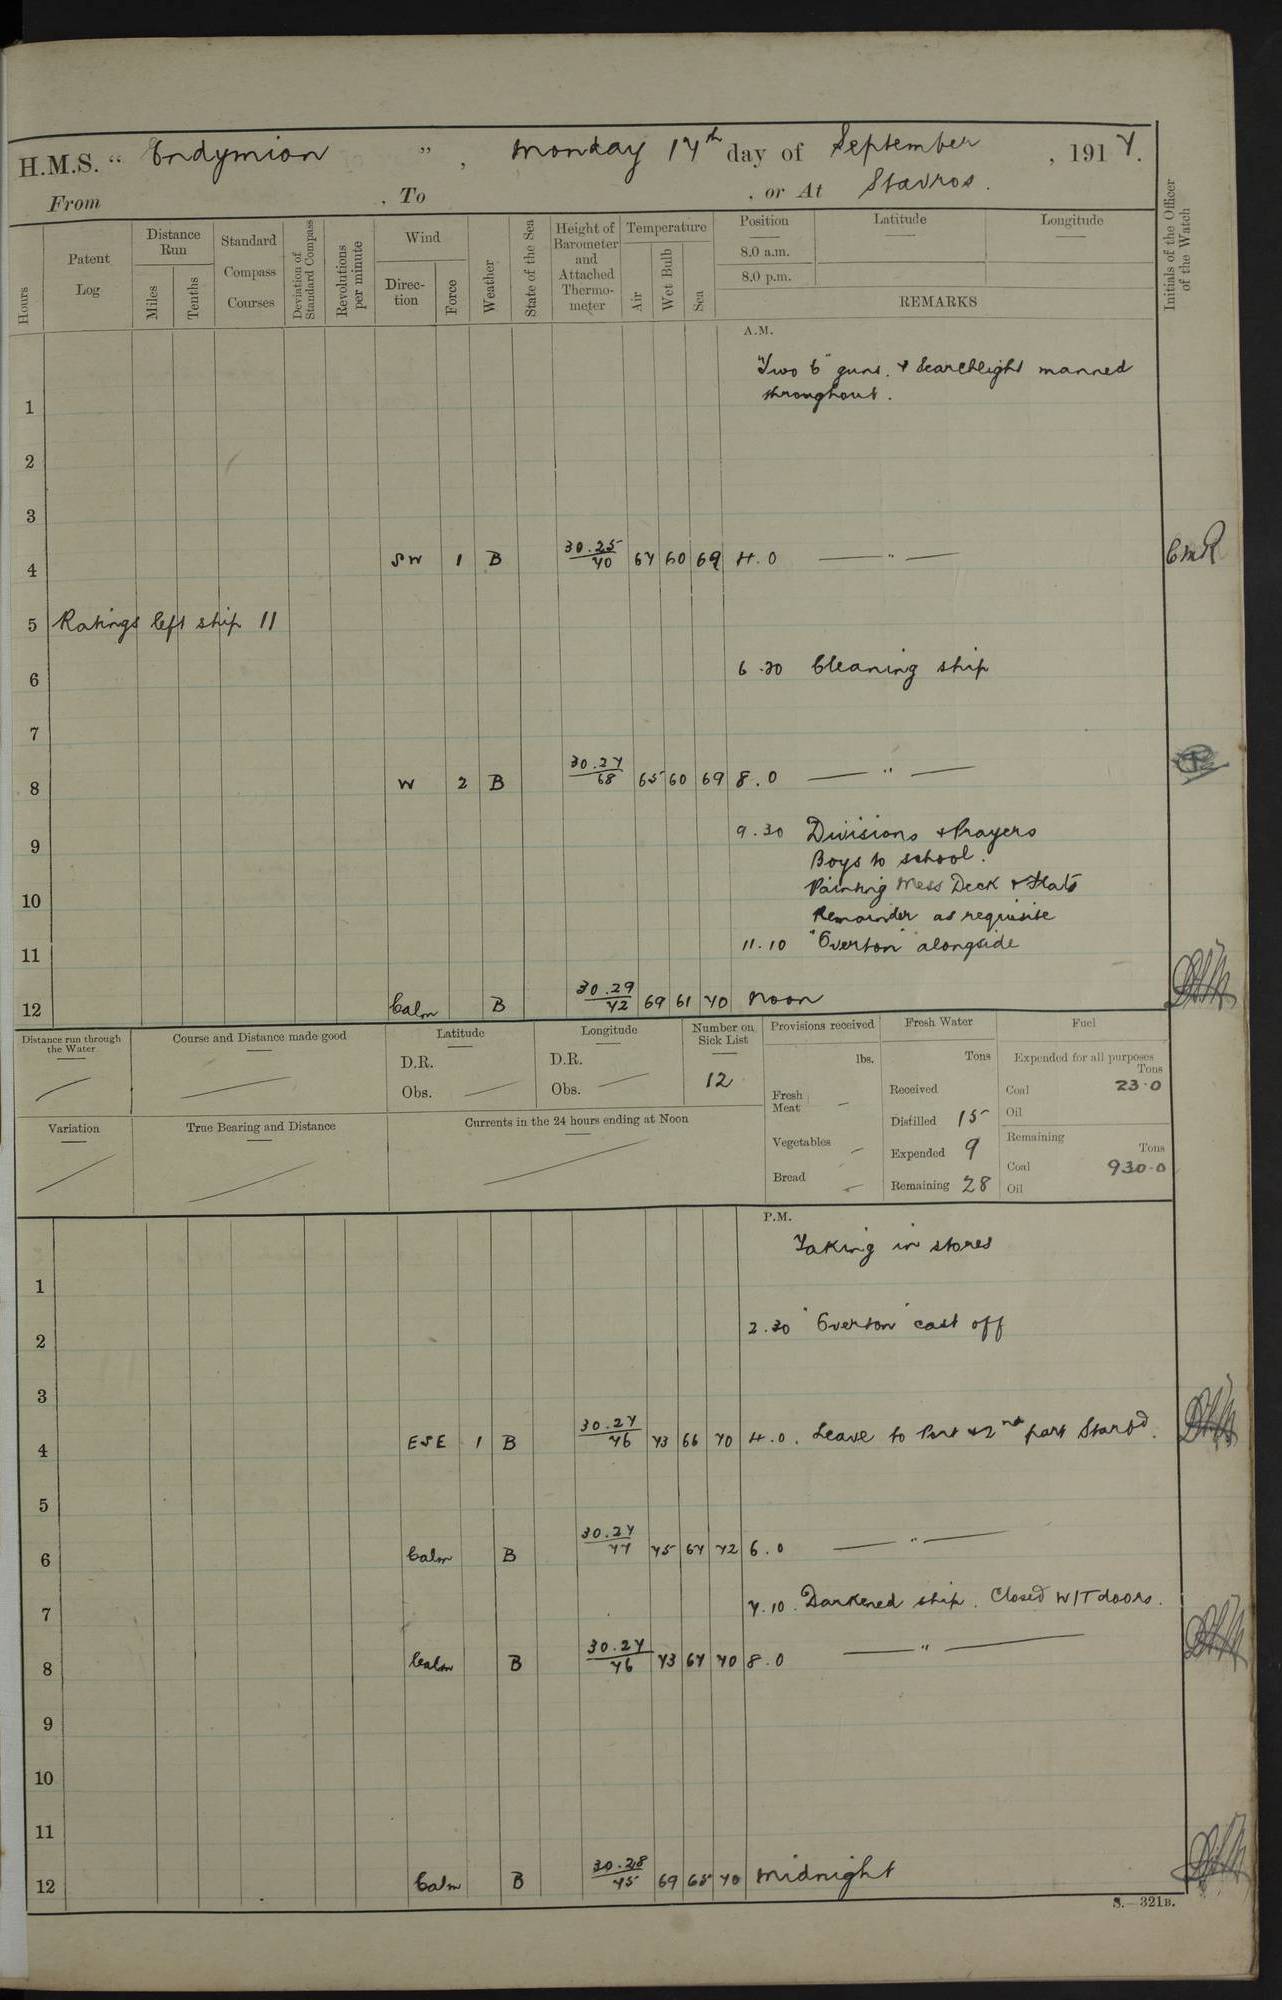 H.M.S. "Endymion", Monday 17th day of September, 1917.
From , To , or At Stavros.
Hours
Patent Log
Distance Run
Miles
Tenths
Standard Compass Courses
Deviation of Standard Compass
Revolutions per minute
Wind
Direction
Force
Weather
State of the Sea
Height of Barometer and Attached Thermometer
Temperature
Air
Wet Bulb
Sea
Position
8.0 a.m.
8.0 p.m.
Latitude
Longitude
REMARKS
Initials of the Officer of the Watch
A.M.
"Two 6" guns. & Searchlight manned
1 throughout.
2
3
4 SW 1 B 30.25/70 67 60 69 4.0 — " —
5 Ratings left ship 11
6 6.30 Cleaning ship
7
8 W 2 B 30.27/68 65 60 69 8.0 — " —
9 9.30 Divisions & Prayers
Boys to school.
10 Painting Mess Deck & Flats
Remainder as requisite
11 11.10 "Overton" alongside
12 Calm B 30.29/72 69 61 70 Noon
Distance run through the Water
Course and Distance made good
Latitude
D.R.
Obs.
Longitude
D.R.
Obs.
Number on Sick List
12
Provisions received
lbs.
Fresh Meat –
Vegetables –
Bread –
Fresh Water
Tons
Received
Distilled 15
Expended 9
Remaining 28
Fuel
Expended for all purposes
Tons
Coal 23.0
Oil
Remaining
Tons
Coal 930.0
Oil
Variation
True Bearing and Distance
Currents in the 24 hours ending at Noon
P.M.
Taking in stores
1
2 2.30 "Overton" cast off
3
4 ESE 1 B 30.27/76 73 66 70 4.0. Leave to Port & 2nd part Starbd.
5
6 Calm B 30.27/77 75 67 72 6.0 — " —
7 7.10. Darkened ship. Closed W/T doors.
8 Calm B 30.27/76 73 67 70 8.0 — " —
9
10
11
12 Calm B 30.28/75 69 65 70 Midnight
S.—321B.